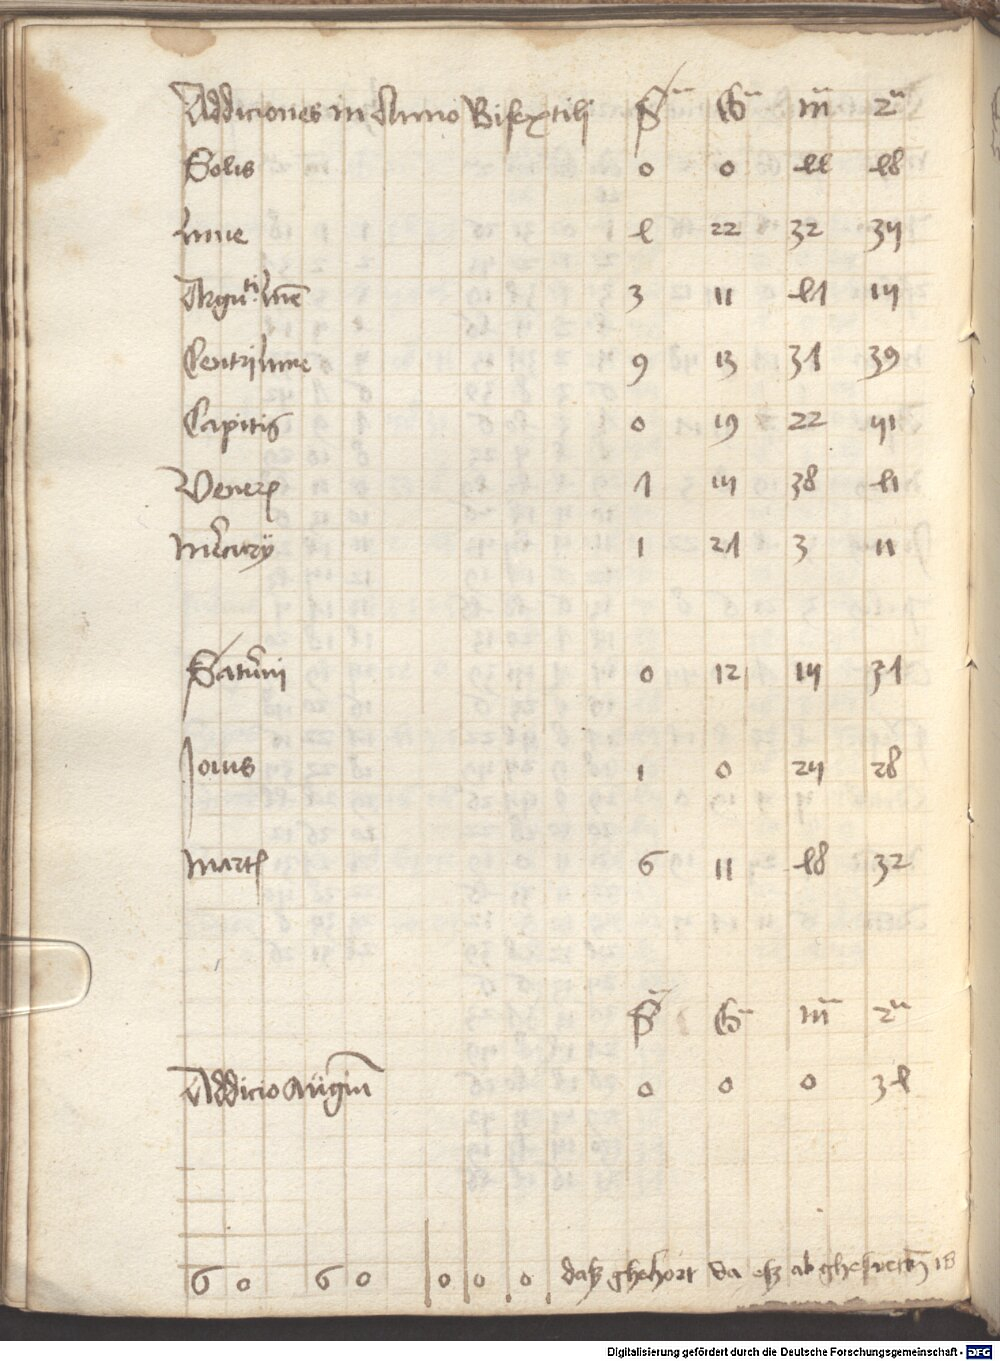 Addiciones in Anno Bisextili S G m 2
Solis 0 0 44 48
Lune 4 22 32 35
Argu^ti Lune 3 11 47 15
Centri Lune 9 13 37 39
Capitis 0 19 22 51
Veneris 7 15 38 41
Mercurÿ 1 27 3 11
Saturni 0 12 15 37
Jovis 1 0 25 28
Martis 6 11 48 32
S G m 2
Addicio Augium 0 0 0 34
60 60 0 0 0 dasz ghehort da esz is